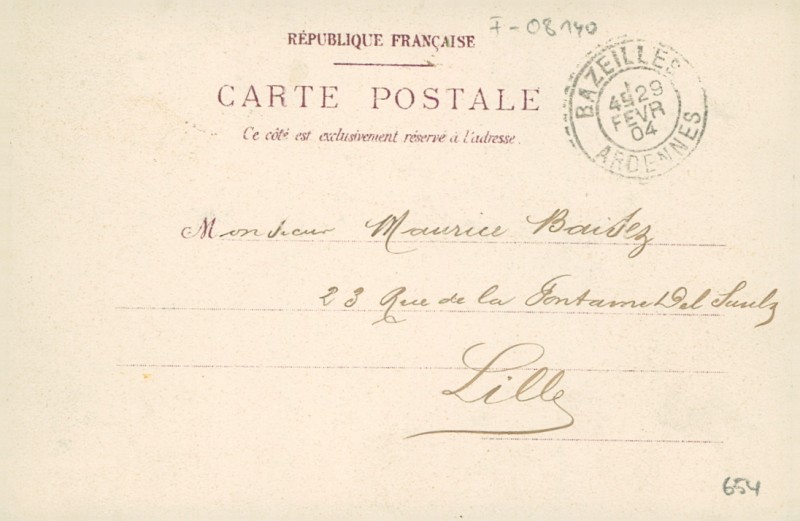 I-08140
RÉPUBLIQUE FRANÇAISE
CARTE POSTALE
Ce côté est exclusivement réservé à l'adresse.
BAZEILLES
4E 29
FEVR
04
ARDENNES
Monsieur Maurice Baisez
23 Rue de la Fontaine Del Saulx
Lille
654